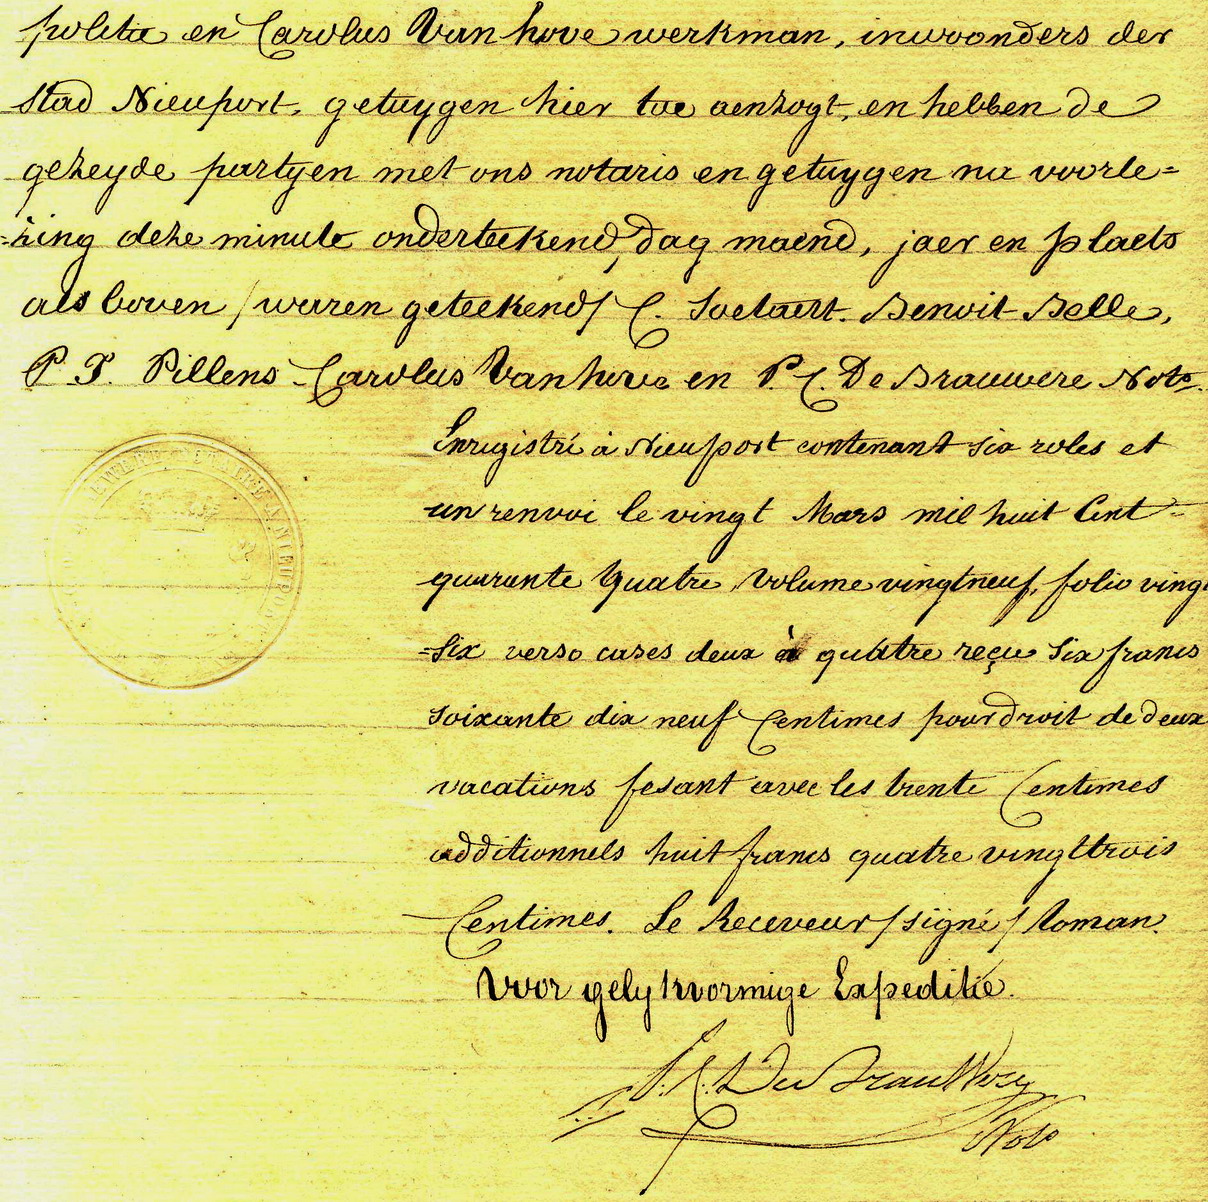 politie en Carolus Vanhove werkman, inwoonders der
stad Nieuport, getuygen hier toe aenzogt, en hebben de
gezeyde partyen met ons notaris en getuygen na voorle=
=zing deze minute onderteekend, dag maend, jaer en plaets
als boven / waren geteekend / C. Soetaert. Benoit Belle,
P. J. Pillens Carolus Vanhove en P. C. De Brauwere Nots.
Enregistré à Nieuport contenant six roles et
un renvoi le vingt Mars mil huit Cent
quarante quatre, volume vingtneuf, folio vingt
=six verso cases deux à quatre reçu six francs
soixante dix neuf Centimes pour droit de deux
vacations fesant avec les trente Centimes
additionnels huit francs quatre vingttrois
Centimes. Le Receveur / signé / Roman.
Voor gelykvormige Expeditie.
P. C. De Brauwere
Nots
EWERE NOTAIRE A NIEUPORT